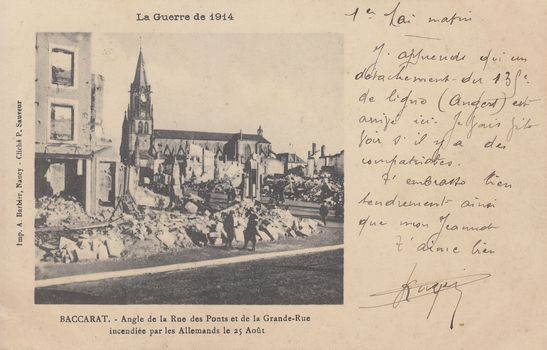 La Guerre de 1914
Imp. A. Barbier, Nancy - Cliché P. Sauveur
BACCARAT. - Angle de la Rue des Ponts et de la Grande-Rue
incendiée par les Allemands le 25 Août
1er Mai matin
J'apprends qu'un
détachement du 135e
de ligne (Angers) est
arrivé ici. Je vais
voir s'il y a des
compatriotes.
T'embrasse bien
tendrement ainsi
que mon Jeannot
T'aime bien